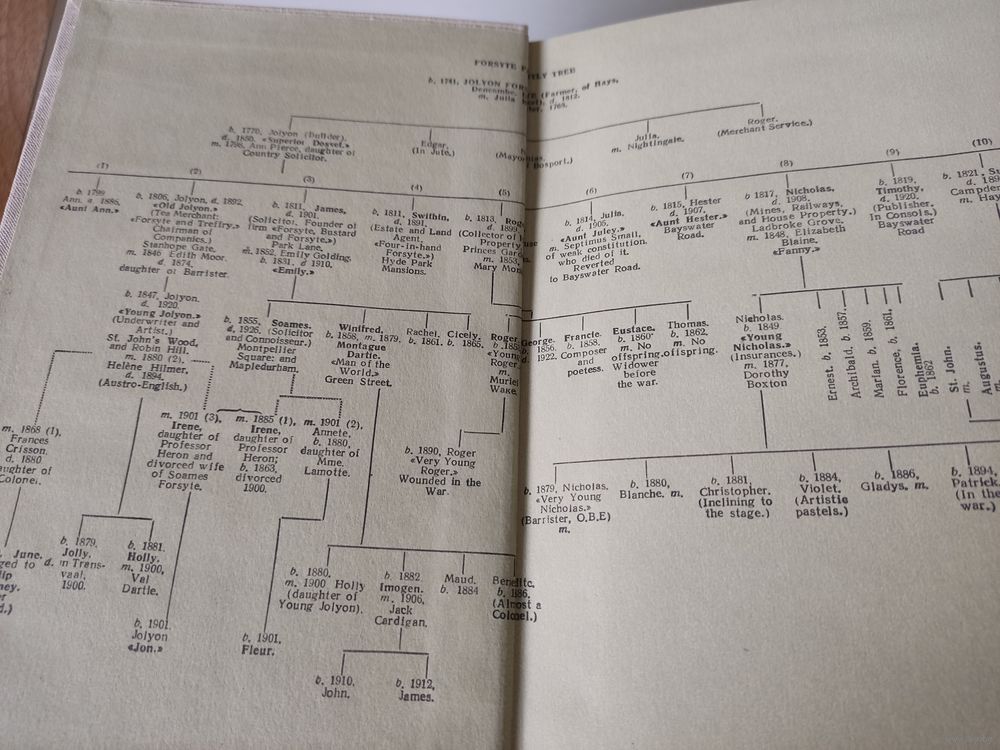 FORSYTE
TREE
b. 1741, JOLYON
(Farmer, of Hays,
d. 1812.
m. Julia
b. 1770, Jolyon (Builder).
d. 1850, «Superior Dosset.»
m. 1798, Ann Pierce, daughter of
Country Solicitor.
Edgar.
(In Jute.)
Julia.
m. Nightingale.
Roger.
(Merchant Service.)
(1)
b. 1799
Ann. d. 1886.
«Aunt Ann.»
(2)
b. 1806, Jolyon, d. 1892.
«Old Jolyon.»
(Tea Merchant:
«Forsyte and Treffry.»
Chairman of
Companies.)
Stanhope Gate.
m. 1846 Edith Moor.
d. 1874,
daughter of Barrister.
(3)
b. 1811, James,
d. 1901.
(Solicitor, Founder of
firm «Forsyte, Bustard
and Forsyte.»)
Park Lane.
m. 1852, Emily Golding.
b. 1831. d 1910.
«Emily.»
(4)
b. 1811, Swithin,
d. 1891
(Estate and Land
Agent.
«Four-in-hand
Forsyte.»)
Hyde Park
Mansions.
(5)
b. 1813,
d. 1899
(Collector of
Property.
Princes
m. 1853,
Mary
(6)
b. 1814, Julia.
d. 1905.
«Aunt Juley.»
m. Septimus Small,
of weak constitution
who died of it.
Reverted
to Bayswater Road.
(7)
b. 1815, Hester
d. 1907,
«Aunt Hester.»
Bayswater
Road.
(8)
b. 1817, Nicholas,
d. 1908.
(Mines, Railways,
and House Property.)
Ladbroke Grove.
m. 1848, Elizabeth
Blaine.
«Fanny.»
(9)
b. 1819,
Timothy,
d. 1920.
(Publisher.
In Consols.)
Bayswater
Road
(10)
b. 1821,
d.
m.
b. 1847, Jolyon.
d. 1920.
«Young Jolyon.»
(Underwriter and
Artist.)
St. John's Wood,
and Robin Hill.
m. 1880 (2).
Helène Hilmer,
d. 1894.
(Austro-English.)
b. 1855, Soames.
d. 1926, (Solicitor
and Connoisseur.)
Montpellier
Square: and
Mapledurham.
Winifred,
b. 1858, m. 1879.
Montague
Dartie.
«Man of the
World.»
Green Street.
Rachel,
b. 1861.
Cicely,
b. 1865.
Roger,
Roger.
m.
Muriel
Wake.
George.
1856,
1922.
Francie.
b. 1858.
Composer
and
poetess.
Eustace.
b. 1860
m. No
offspring.
Widower
before
the war.
Thomas.
b. 1862.
m. No
offspring.
Nicholas.
b. 1849
«Young
Nicholas.»
(Insurances.)
m. 1877,
Dorothy
Boxton
Ernest. b. 1853,
Archibald. b. 1857.
Marian. b. 1859.
Florence, b. 1861.
Euphemia.
b. 1862
St. John.
m.
Augustus.
m.
m. 1868 (1),
Frances
Crisson.
d. 1880
m. 1901 (3),
Irene,
daughter of
Professor
Heron and
divorced wife
of Soames
Forsyte.
m. 1885 (1),
Irene,
daughter of
Professor
Heron;
b. 1863,
divorced
1900.
m. 1901 (2),
Annete,
b. 1880,
daughter of
Mme.
Lamotte.
b. 1890, Roger
«Very Young
Roger.»
Wounded in the
War.
b. 1879, Nicholas.
«Very Young
Nicholas.»
(Barrister, O.B.E)
m.
b. 1880,
Blanche. m.
b. 1881,
Christopher.
(Inclining to
the stage.)
b. 1884,
Violet.
(Artistic
pastels.)
b. 1886,
Gladys. m.
b. 1894,
Patrick.
(In the
war.)
June.
b. 1879.
Jolly,
d. in Trans-
vaal,
1900.
b. 1881.
Holly.
m. 1900,
Val
Dartie.
b. 1901.
Jolyon
«Jon.»
b. 1901,
Fleur.
b. 1880,
m. 1900 Holly
(daughter of
Young Jolyon).
b. 1882
Imogen.
m. 1906,
Jack
Cardigan.
Maud.
b. 1884
b. 1886.
(Almost a
Colonel.)
b. 1910,
John.
b. 1912,
James.